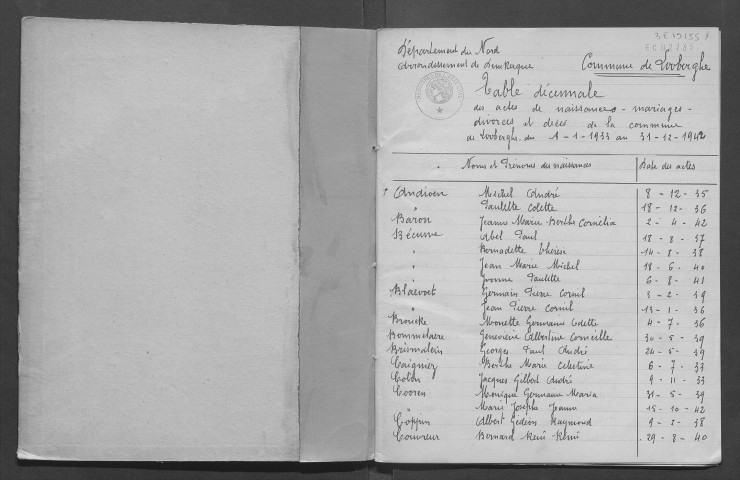 3E19155
Département du Nord
Arrondissement de Dunkerque
Commune de Looberghe
Table décennale
des actes de naissances - mariages -
divorces et décès de la commune
de Looberghe du 1-1-1933 au 31-12-1942
Noms et Prénoms des naissances Date des actes
Andioen Michel André 8 - 12 - 35
" Paulette Colette 18 - 12 - 36
Baron Jeanne Marie Berthe Cornélia 2 - 4 - 42
Bécuwe Abel Paul 18 - 8 - 37
" Bernadette Thérèse 14 - 8 - 38
" Jean Marie Michel 18 - 6 - 40
" Yvonne Paulette 6 - 8 - 41
Blaevoet Germain Pierre Cornil 3 - 2 - 39
" Jean Pierre Cornil 13 - 1 - 36
Broucke Monette Germaine Odette 4 - 7 - 36
Bommelaere Geneviève Albertine Corneille 30 - 5 - 39
Brismalein Georges Paul André 24 - 5 - 39
Caigniez Berthe Marie Célestine 6 - 7 - 33
Colon Jacques Gilbert André 9 - 11 - 33
Cooren Monique Germaine Maria 31 - 5 - 39
Marie Josèphe Jeanne 15 - 10 - 42
Coppin Albert Gédéon Raymond 9 - 8 - 38
Couvreur Bernard René Rémi 29 - 8 - 40